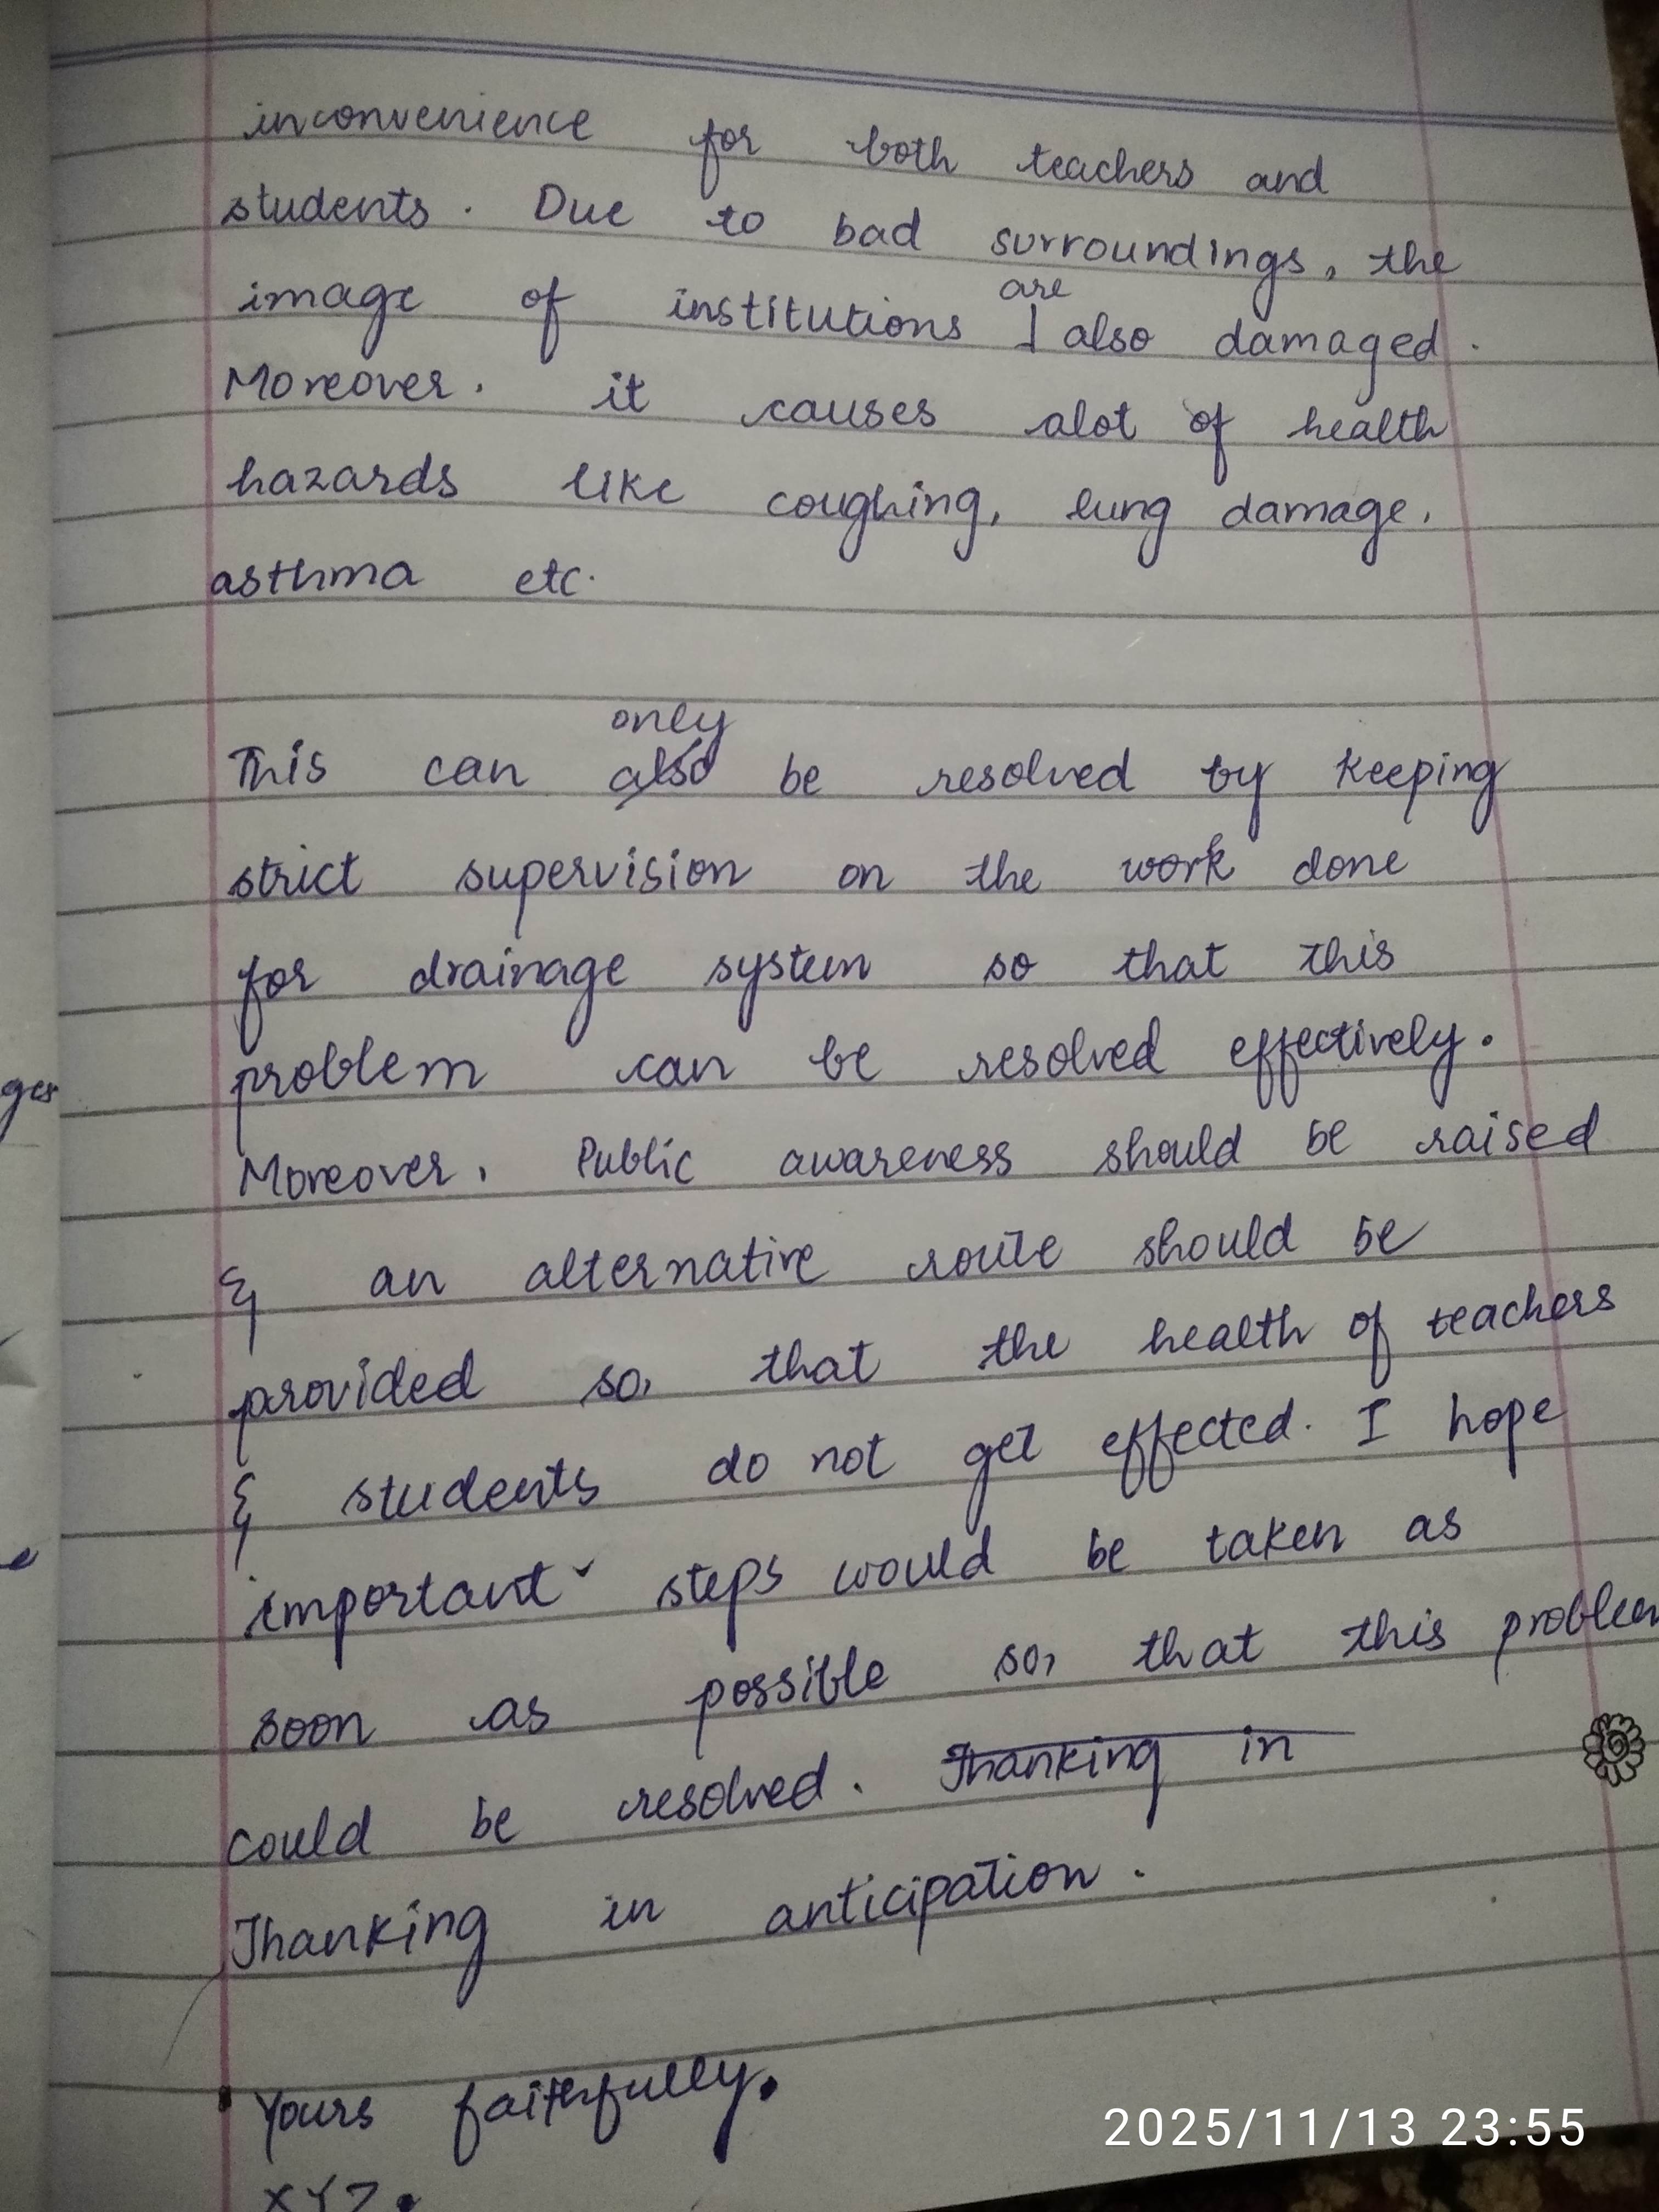 inconvenience for both teachers and
students. Due to bad surroundings, the
are
image of institutions also damaged.
Moreover, it causes alot of health
hazards like coughing, lung damage,
asthma etc.
only
This can also be resolved by keeping
strict supervision on the work done
for drainage system so that this
problem can be resolved effectively.
Moreover, Public awareness should be raised
& an alternative route should be
provided so, that the health of teachers
& students do not get effected. I hope
important steps would be taken as
soon as possible so, that this problem
could be resolved. Thanking in
Thanking in anticipation.
Yours faithfully.
XYZ.
ges
e
2025/11/13 23:55